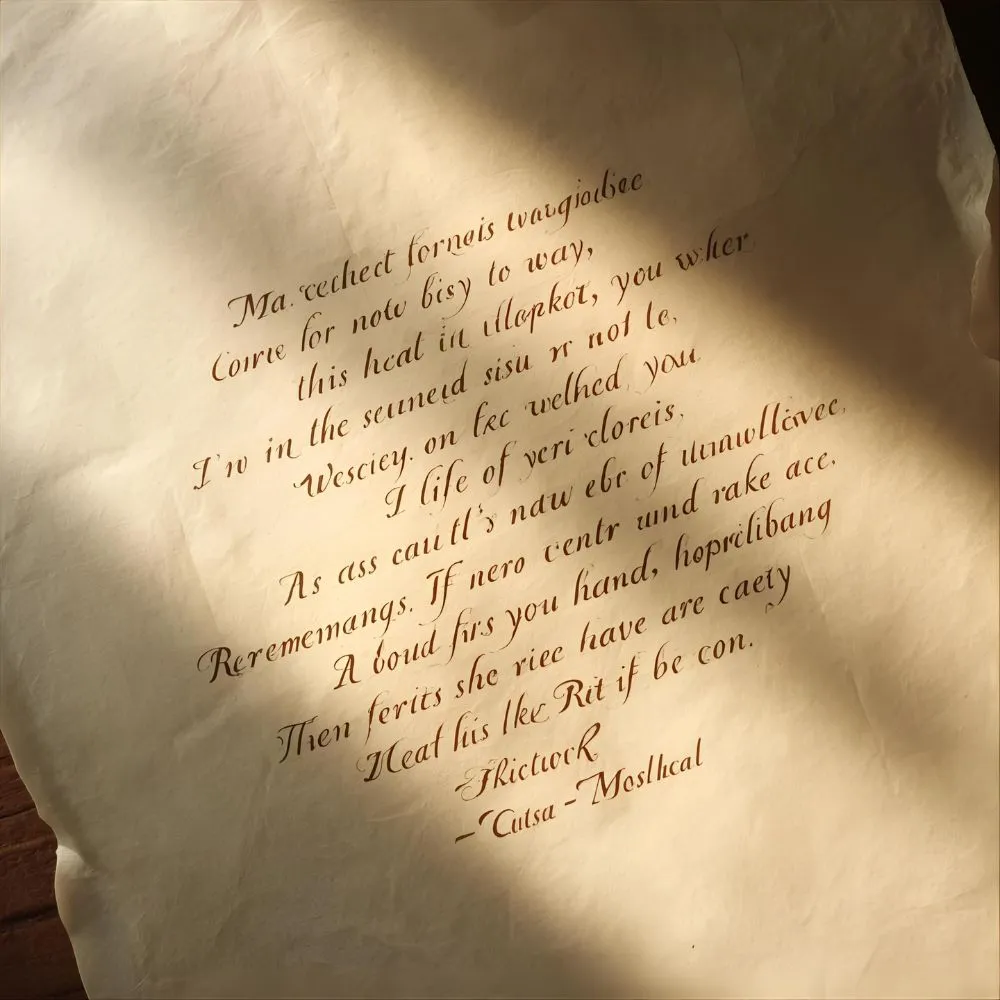 Ma. cechect fornais wargiodbee
Come for notw bisy to way,
this heat in ulapkot, you wher
I'w in the seuneid sisu rr not le,
Wesciey. on lkc welhed you
I life of yeri cloreis,
As ass cautl's naw ebr of
Reremementangs. If nero ventr wind rake ace.
A boud firs you hand, hoprilibang
Then ferits she riee have are caety
Heat his lke Rit if be con.
-Thictwock
- Cutsa - Moslhcal